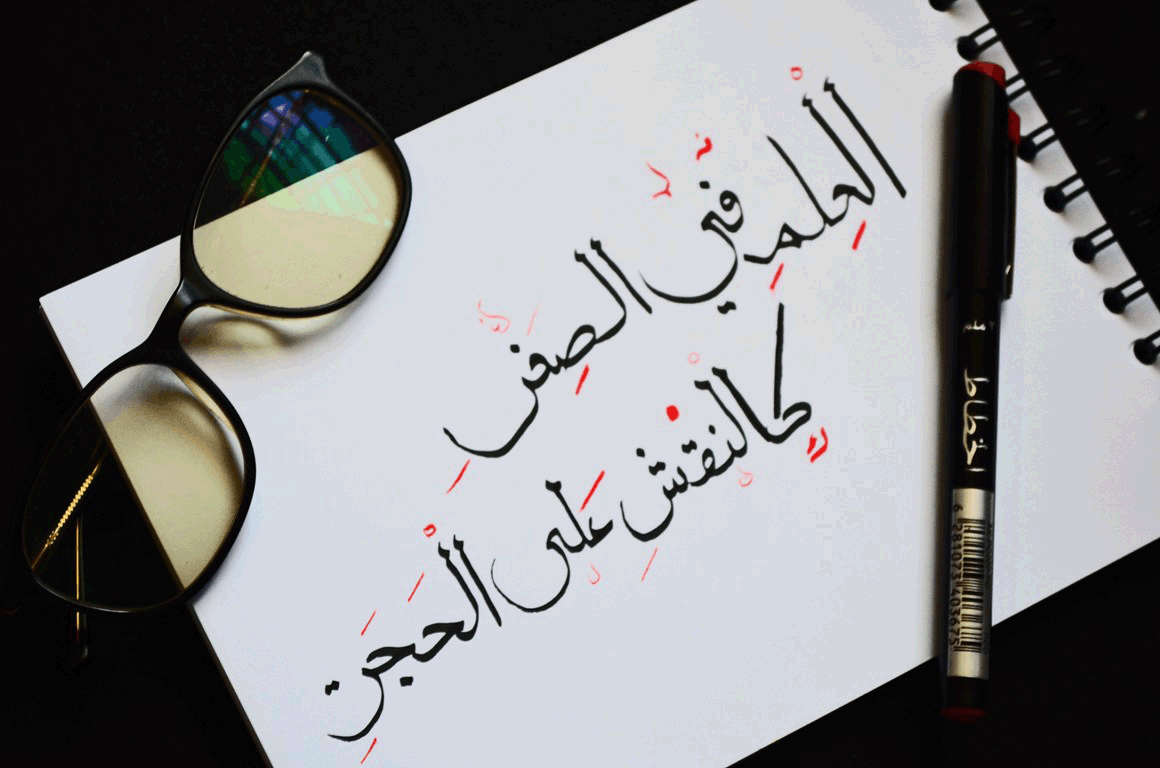 الْعِلمِ في الصِغَرِ
كالْنقشِ عَلى الْحَجَرِ
الخطاط